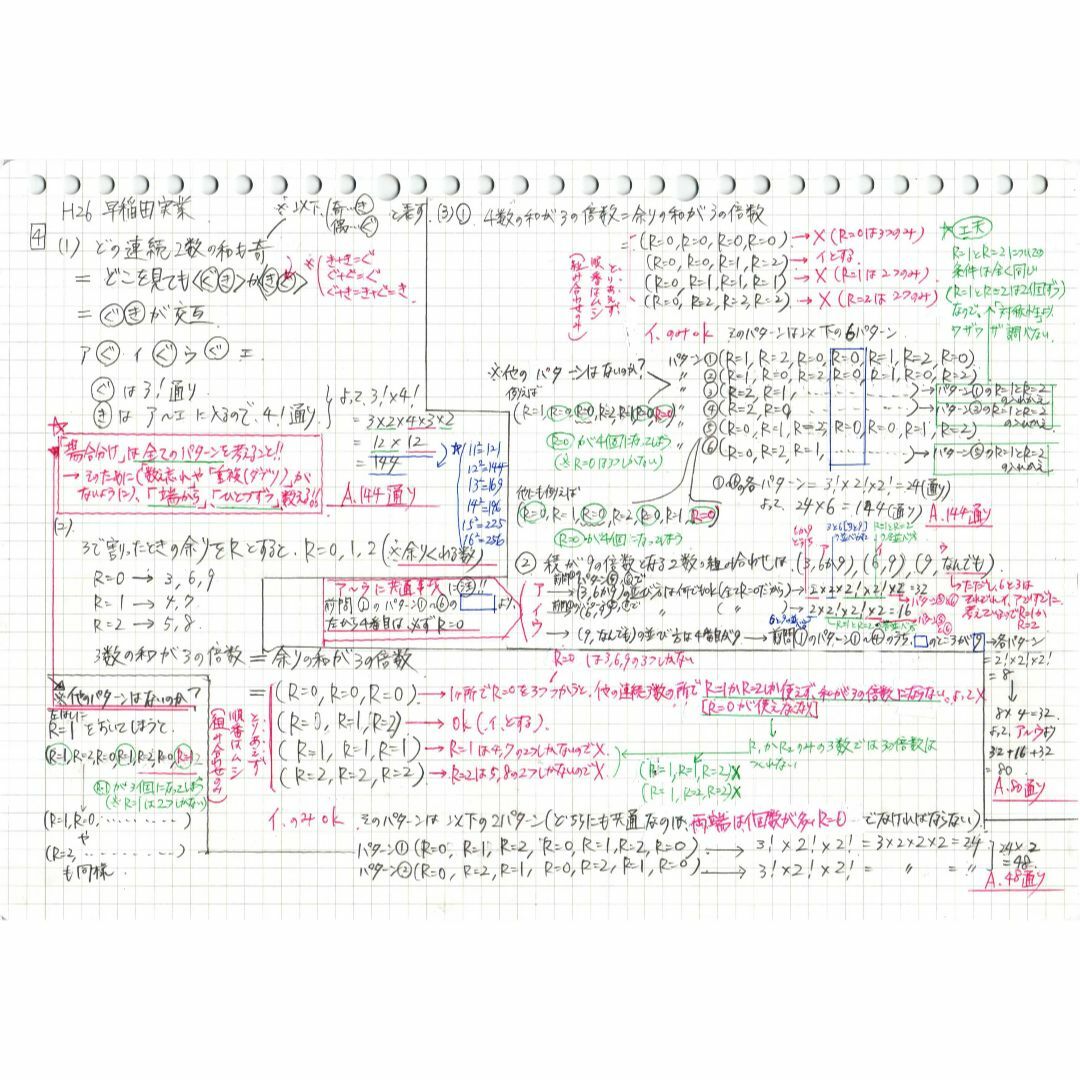 H26 早稲田実業
※以下、(奇…き 偶…ぐ)と表す.
4
(1) どの連続2数の和も奇
= どこを見ても<ぐき>か<きぐ>
※(き+き=ぐ
ぐ+ぐ=ぐ
ぐ+き=き+ぐ=き
= ぐきが交互.
ア ぐ イ ぐ ウ ぐ エ
ぐは3!通り
きはア〜エに入るので、4!通り
よって、3!×4!
=3×2×4×3×2
=12×12
=144
A.144通り
※11²=121
12²=144
13²=169
14²=196
15²=225
16²=256
「場合分け」は全てのパターンを考えること!!
→そのために(数忘れや「重複(ダブリ)」が
ないように)、「端から」、「ひとつずつ」数える!!
(2)
3で割ったときの余りをRとすると、R=0,1,2(※余りくれる数)
R=0 → 3,6,9
R=1 → 4,7
R=2 → 5,8.
3数の和が3の倍数=余りの和が3の倍数
R=0は3,6,9の3つしかない
とりあえず
順番はムシ
(組み合わせのみ)
=(R=0,R=0,R=0)→1ヶ所でR=0を3つつかうと、他の連続3数の所でR=1かR=2しか使えず、和が3の倍数にならない。よって×
[R=0が使えなくなる]
(R=0,R=1,R=2)→ok(イとする)
(R=1,R=1,R=1)→R=1は4,7の2つしかないので×
(R=2,R=2,R=2)→R=2は5,8の2つしかないので×
(R=1,R=1,R=2)×
(R=1,R=2,R=2)×
イのみok そのパターンは以下の2パターン(どちらにも共通なのは、両端は個数が多いR=0でなければならない)
パターン①(R=0,R=1,R=2,R=0,R=1,R=2,R=0)→3!×2!×2!=3×2×2×2=24
パターン②(R=0,R=2,R=1,R=0,R=2,R=1,R=0)→3!×2!×2!= 〃 = 〃
24×2
=48.
A.48通り
※他のパターンはないのか?
左はしに
R=1をおいてしまうと
(R=1,R=2,R=0,R=1,R=2,R=0,R=1)
R=1が3個になってしまう
(※R=1は2つしかない)
(R=1,R=0,………)
や
(R=2,………)
も同様
(3)① 4数の和が3の倍数=余りの和が3の倍数
とりあえず
順番はムシ
(組み合わせのみ)
=(R=0,R=0,R=0,R=0)→×(R=0は3つのみ)
(R=0,R=0,R=1,R=2)→イとする.
(R=0,R=1,R=1,R=1)→×(R=1は2つのみ)
(R=0,R=2,R=2,R=2)→×(R=2は2つのみ)
イのみok そのパターンは以下の6パターン
☆工夫
R=1とR=2についての
条件は全く同じ
(R=1とR=2は2個ずつ)
なので、「対称が生じ
ワザワザ調べない.
パターン①(R=1,R=2,R=0,R=0,R=1,R=2,R=0)
〃②(R=1,R=0,R=2,R=0,R=1,R=0,R=2)
〃③(R=2,R=1,………)→パターン①のR=1とR=2の入れかえ
〃④(R=2,R=0,………)→パターン②のR=1とR=2の入れかえ
〃⑤(R=0,R=1,R=2,R=0,R=0,R=1,R=2)
〃⑥(R=0,R=2,R=1,………)→パターン⑤のR=1とR=2の入れかえ
※他のパターンはないのか?
例えば
(R=1,R=0,R=0,R=2,R=1,R=0,R=0)
R=0が4個になってしまう
(※R=0は3つしかない)
他にも例えば
(R=0,R=1,R=0,R=2,R=0,R=1,R=0)
R=0が4個になってしまう
①〜⑥の各パターン=3!×2!×2!=24(通り)
よって、24×6=144(通り)
A.144通り
② 積が9の倍数となる2数の組み合わせは、(3,6か9),(6,9),(9,なんでも)
ア〜ウに共通事項に注!!
前問①のパターン①〜⑥の□より、
左から4番目は必ずR=0
→2×2!×2!×2!×2=32
→2×2!×2!×2=16
(9,なんでも)の並び方は4番目が9→前問①のパターン①〜④のうち、□のところが9→各パターン
=2!×2!×2!
=8
8×4=32.
よって、ア〜ウより
32+16+32
=80.
A.80通り